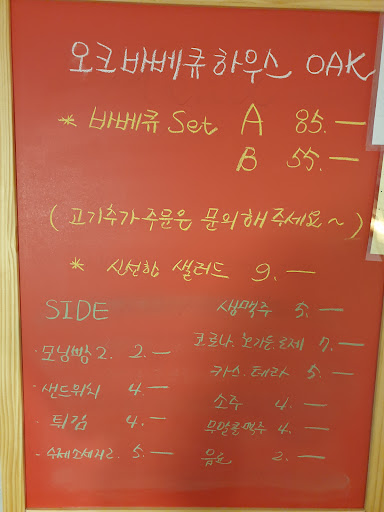 오크 바베큐 하우스 OAK
* 바베큐 Set A 85.—
B 55.—
( 고기추가 주문은 문의해주세요~ )
* 신선한 샐러드 9.—
SIDE
· 모닝빵 2. 2.—
· 샌드위치 4.—
· 튀김 4.—
· 수제소세지 2. 5.—
생맥주 5.—
코로나. 호가든로제 7.—
카스. 테라 5.—
소주 4.—
무알콜맥주 4.—
음료 2.—